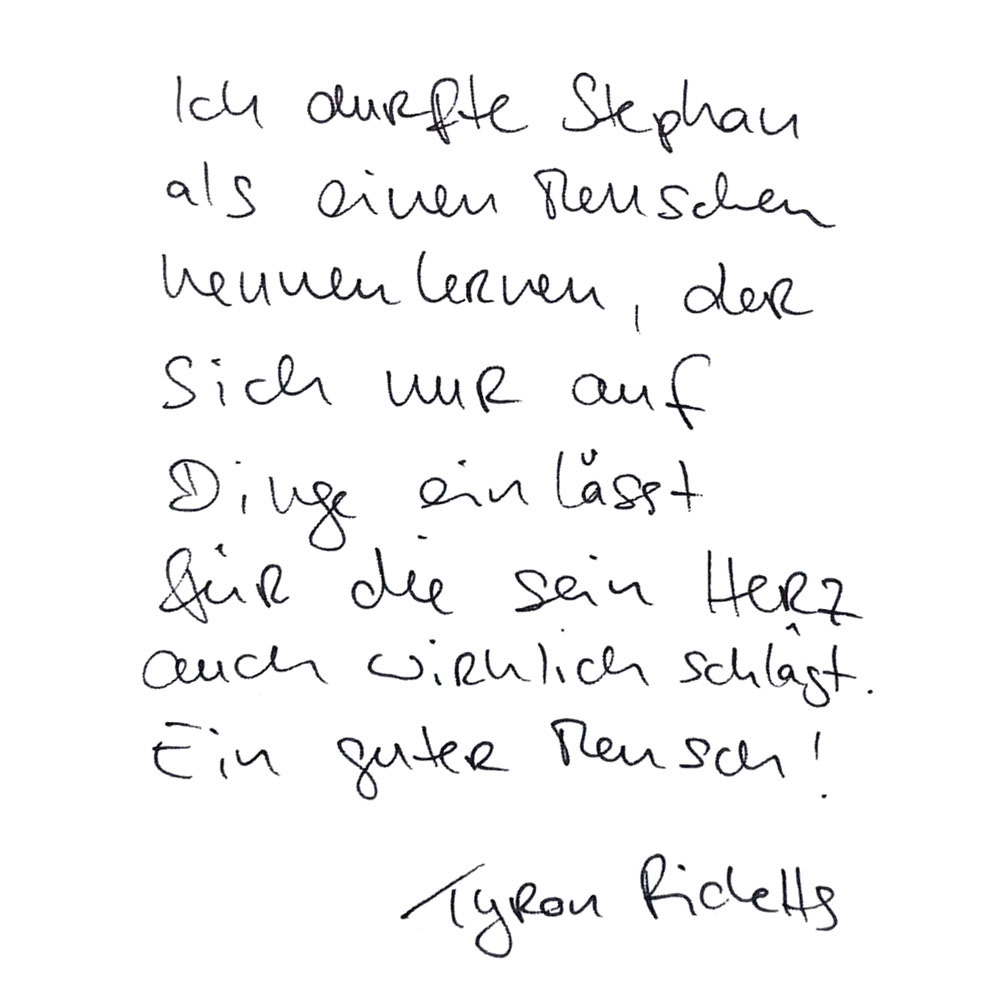 Ich durfte Stephan
als einen Menschen
kennenlernen, der
sich nur auf
Dinge einlässt
für die sein Herz
auch wirklich schlägt.
Ein guter Mensch!
Tyron Ricketts